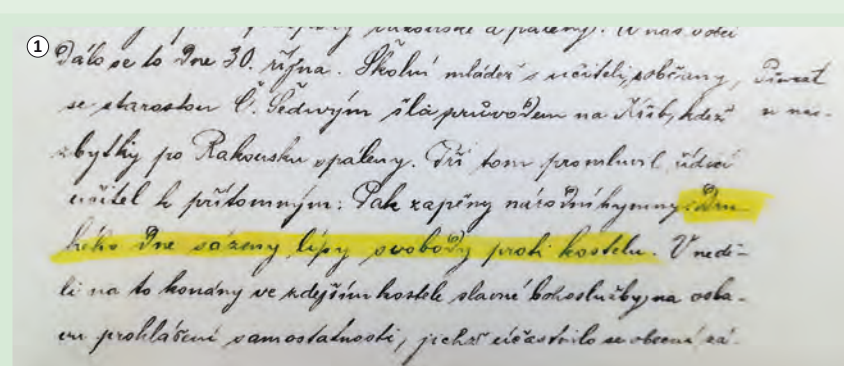 ①
a páleny. U nás v obci
Dálo se to dne 30. října. Školní mládež s učiteli, občany,
se starostou Č. Šedivým šla průvodem na Kříb, kdež
zbytky po Rakousku spáleny. Při tom promluvil řídící
učitel k přítomným. Pak zapěny národní hymny. Dru
hého dne sázeny lípy svobody proti kostelu. V nedě-
li na to konány ve zdejším kostele slavné bohoslužby, na osla-
vu prohlášení samostatnosti, jichž účastnilo se obecní za-